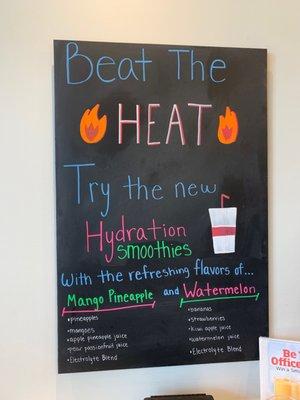 Beat The
HEAT
Try the new
Hydration
smoothies
With the refreshing flavors of...
Mango Pineapple and Watermelon
•pineapples
•mangoes
•apple pineapple juice
•pear passionfruit juice
•Electrolyte Blend
•bananas
•strawberries
•kiwi apple juice
•watermelon juice
•Electrolyte Blend
Be
Office
Win a Sm